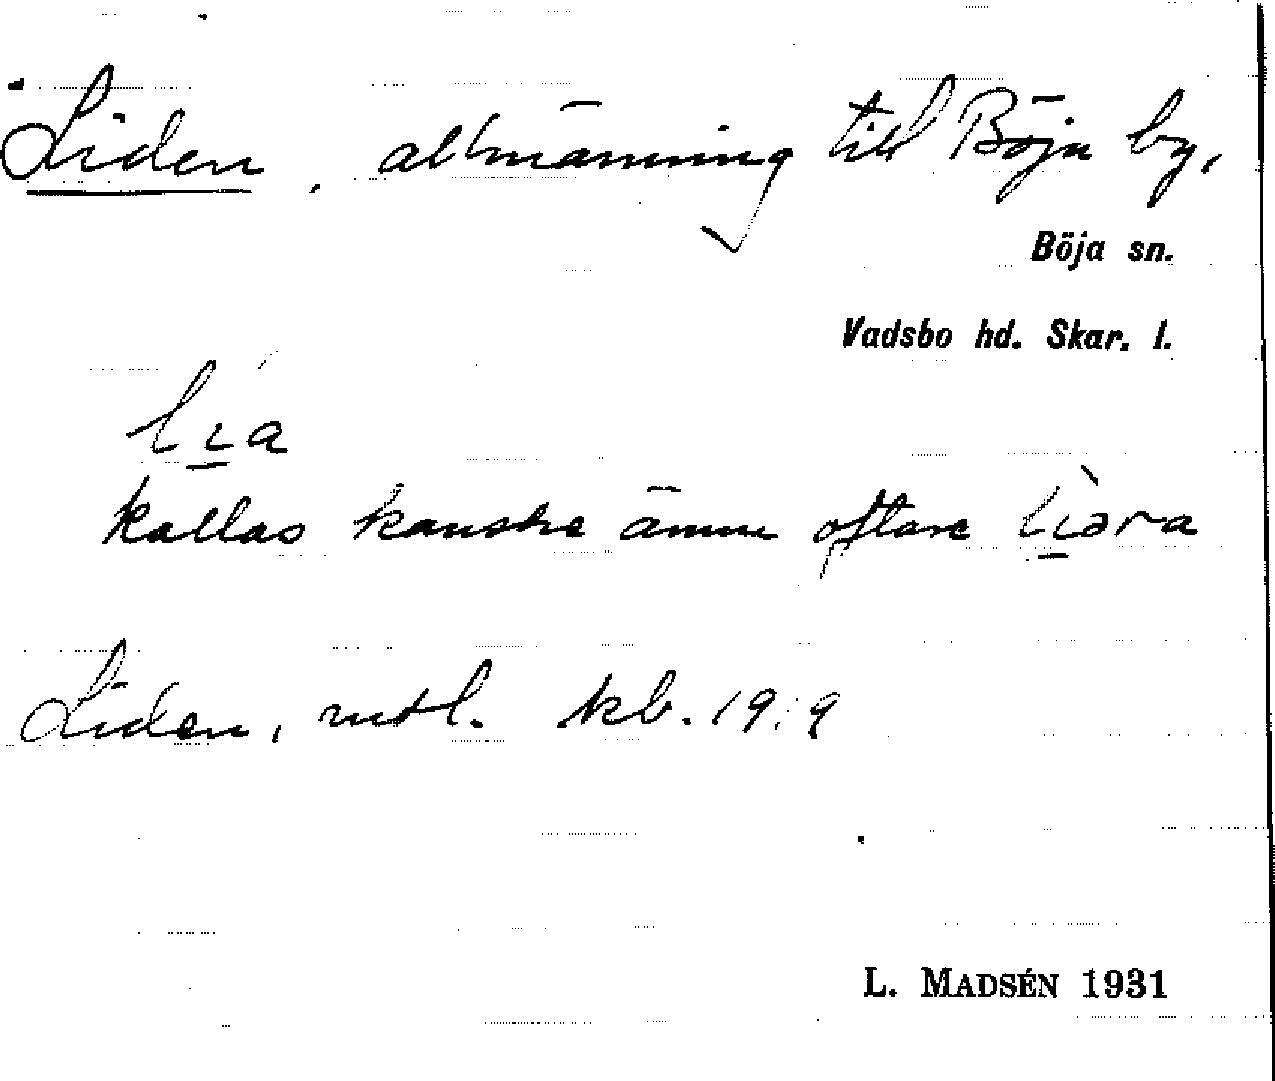 Liden, allmänning till Böja by,
Böja sn.
Vadsbo hd. Skar. l.
lı̲a
kallas kanske ännu oftare lı̲əra
Liden, mtl. kb. 1919
L. MADSÉN 1931